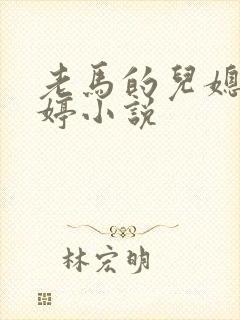 老馬的兒媳
婷小説
林宏明